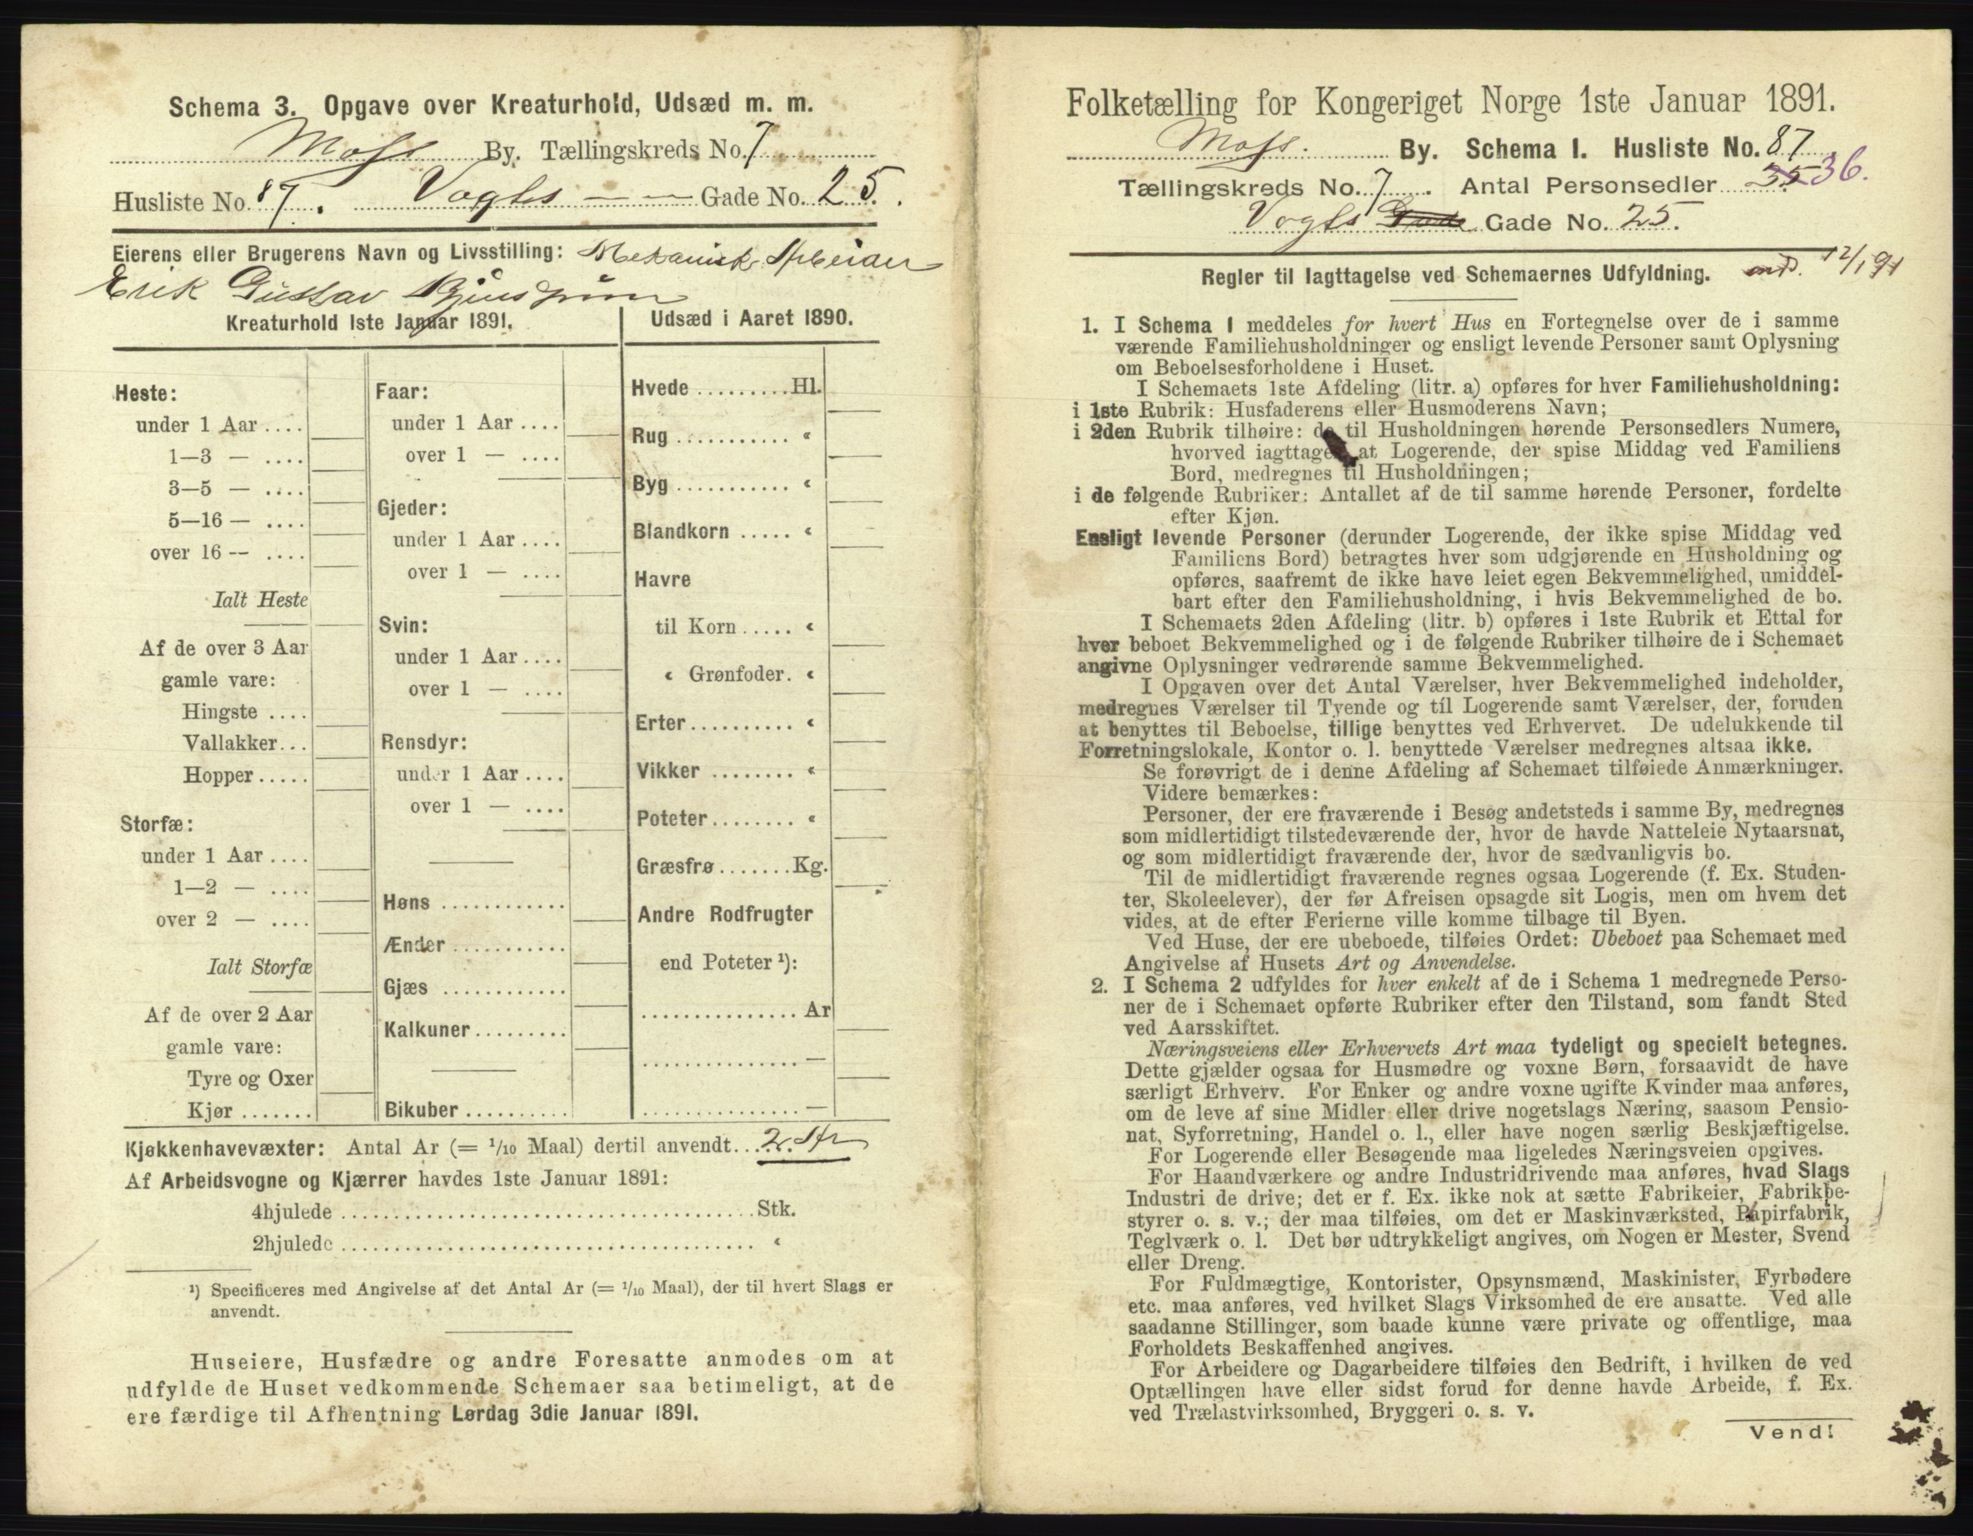 Schema 3. Opgave over Kreaturhold, Udsæd m. m.
Moss By. Tællingskreds No. 7
Husliste No. 87. Vogts — — Gade No. 25.
Eierens eller Brugerens Navn og Livsstilling: Mekanisk Arbeider
Erik Gustav
Kreaturhold 1ste Januar 1891.
Heste:
under 1 Aar ....
1—3 — ....
3—5 — ....
5—16 — ....
over 16 — ....
Ialt Heste
Af de over 3 Aar
gamle vare:
Hingste ....
Vallakker...
Hopper.....
Storfæ:
under 1 Aar ....
1—2 — ....
over 2 — ....
Ialt Storfæ
Af de over 2 Aar
gamle vare:
Tyre og Oxer
Kjør .......
Faar:
under 1 Aar ....
over 1 — ....
Gjeder:
under 1 Aar ....
over 1 — ....
Svin:
under 1 Aar ....
over 1 — ....
Rensdyr:
under 1 Aar ....
over 1 — ....
Høns ............
Ænder ...........
Gjæs ............
Kalkuner.........
Bikuber ..........
Udsæd i Aaret 1890.
Hvede .........Hl.
Rug ........... “
Byg ........... “
Blandkorn ..... “
Havre
til Korn ..... “
“ Grønfoder. “
Erter.......... “
Vikker ........ “
Poteter........ “
Græsfrø.......Kg.
Andre Rodfrugter
end Poteter ¹):
............... Ar
............... —
............... —
Kjøkkenhavevæxter: Antal Ar (= 1/10 Maal) dertil anvendt... 2. Ar
Af Arbeidsvogne og Kjærrer havdes 1ste Januar 1891:
4hjulede ........................................Stk.
2hjulede ........................................ “
¹) Specificeres med Angivelse af det Antal Ar (= 1/10 Maal), der til hvert Slags er
anvendt.
Huseiere, Husfædre og andre Foresatte anmodes om at
udfylde de Huset vedkommende Schemaer saa betimeligt, at de
ere færdige til Afhentning Lørdag 3die Januar 1891.
Folketælling for Kongeriget Norge 1ste Januar 1891.
Moss. By. Schema 1. Husliste No. 87
Tællingskreds No. 7. Antal Personsedler 35 36.
Vogts Gade Gade No. 25.
Regler til Iagttagelse ved Schemaernes Udfyldning. 12/1 91
1. I Schema 1 meddeles for hvert Hus en Fortegnelse over de i samme
værende Familiehusholdninger og ensligt levende Personer samt Oplysning
om Beboelsesforholdene i Huset.
I Schemaets 1ste Afdeling (litr. a) opføres for hver Familiehusholdning:
i 1ste Rubrik: Husfaderens eller Husmoderens Navn;
i 2den Rubrik tilhøire: de til Husholdningen hørende Personsedlers Numere,
hvorved iagttages, at Logerende, der spise Middag ved Familiens
Bord, medregnes til Husholdningen;
i de følgende Rubriker: Antallet af de til samme hørende Personer, fordelte
efter Kjøn.
Ensligt levende Personer (derunder Logerende, der ikke spise Middag ved
Familiens Bord) betragtes hver som udgjørende en Husholdning og
opføres, saafremt de ikke have leiet egen Bekvemmelighed, umiddel-
bart efter den Familiehusholdning, i hvis Bekvemmelighed de bo.
I Schemaets 2den Afdeling (litr. b) opføres i 1ste Rubrik et Ettal for
hver beboet Bekvemmelighed og i de følgende Rubriker tilhøire de i Schemaet
angivne Oplysninger vedrørende samme Bekvemmelighed.
I Opgaven over det Antal Værelser, hver Bekvemmelighed indeholder,
medregnes Værelser til Tyende og til Logerende samt Værelser, der, foruden
at benyttes til Beboelse, tillige benyttes ved Erhvervet. De udelukkende til
Forretningslokale, Kontor o. l. benyttede Værelser medregnes altsaa ikke.
Se forøvrigt de i denne Afdeling af Schemaet tilføiede Anmærkninger.
Videre bemærkes:
Personer, der ere fraværende i Besøg andetsteds i samme By, medregnes
som midlertidigt tilstedeværende der, hvor de havde Natteleie Nytaarsnat,
og som midlertidigt fraværende der, hvor de sædvanligvis bo.
Til de midlertidigt fraværende regnes ogsaa Logerende (f. Ex. Studen-
ter, Skoleelever), der før Afreisen opsagde sit Logis, men om hvem det
vides, at de efter Ferierne ville komme tilbage til Byen.
Ved Huse, der ere ubeboede, tilføies Ordet: Ubeboet paa Schemaet med
Angivelse af Husets Art og Anvendelse.
2. I Schema 2 udfyldes for hver enkelt af de i Schema 1 medregnede Perso-
ner de i Schemaet opførte Rubriker efter den Tilstand, som fandt Sted
ved Aarsskiftet.
Næringsveiens eller Erhvervets Art maa tydeligt og specielt betegnes.
Dette gjælder ogsaa for Husmødre og voxne Børn, forsaavidt de have
særligt Erhverv. For Enker og andre voxne ugifte Kvinder maa anføres,
om de leve af sine Midler eller drive nogetslags Næring, saasom Pensio-
nat, Syforretning, Handel o. l., eller have nogen særlig Beskjæftigelse.
For Logerende eller Besøgende maa ligeledes Næringsveien opgives.
For Haandværkere og andre Industridrivende maa anføres, hvad Slags
Industri de drive; det er f. Ex. ikke nok at sætte Fabrikeier, Fabrikbe-
styrer o. s. v.; der maa tilføies, om det er Maskinværksted, Papirfabrik,
Teglværk o. l. Det bør udtrykkeligt angives, om Nogen er Mester, Svend
eller Dreng.
For Fuldmægtige, Kontorister, Opsynsmænd, Maskinister, Fyrbødere
etc. maa anføres, ved hvilket Slags Virksomhed de ere ansatte. Ved alle
saadanne Stillinger, som baade kunne være private og offentlige, maa
Forholdets Beskaffenhed angives.
For Arbeidere og Dagarbeidere tilføies den Bedrift, i hvilken de ved
Optællingen have eller sidst forud for denne havde Arbeide, f. Ex.
ved Trælastvirksomhed, Bryggeri o. s. v.
Vend!